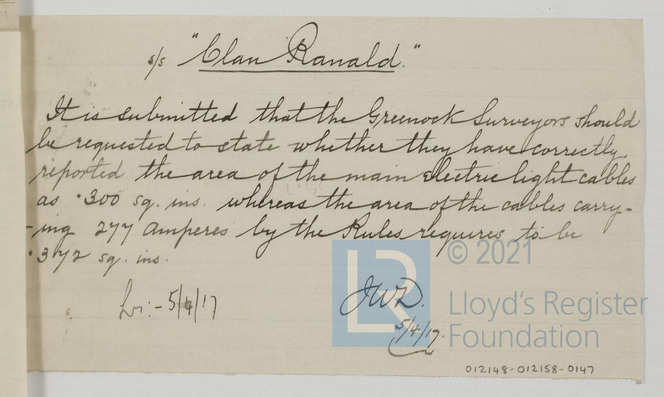 s/s "Clan Ranald."
It is submitted that the Greenock Surveyors should
be requested to state whether they have correctly
reported the area of the main electric light cables
as ·300 sq. ins. whereas the area of the cables carry-
-ing 277 amperes by the Rules requires to be
·372 sq. ins.
Lr:- 5/4/17
JWD.
5/4/17.
LR
© 2021
Lloyd's Register
Foundation
012148-012158-0147